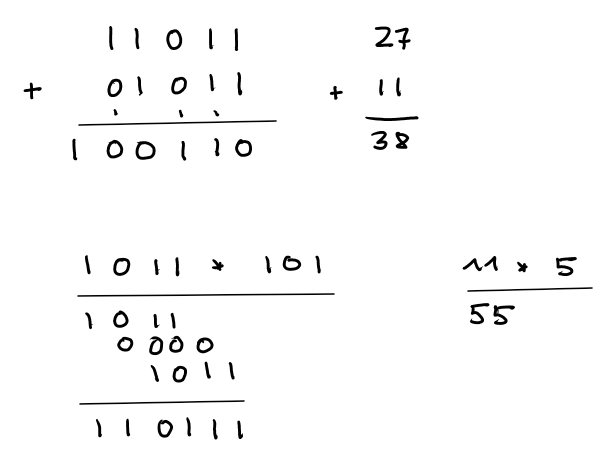 11011
+ 01011
100110
27
+ 11
38
1011 * 101
1011
0000
1011
110111
11 * 5
55